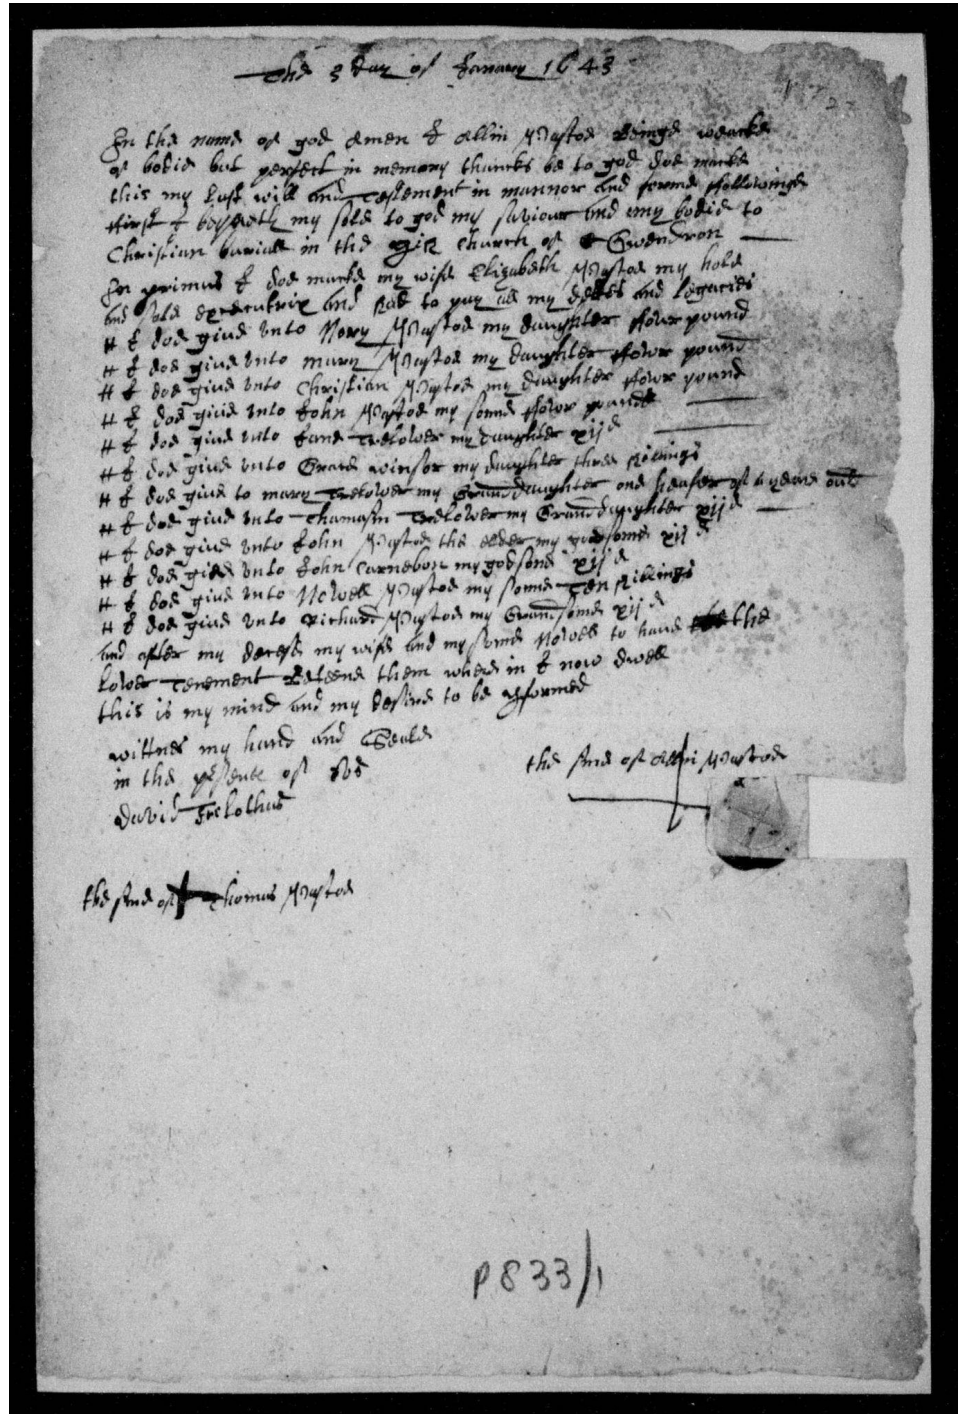 The 3 day of Janary 1643
In the name of god Amen I Allin Pascoe beinge weacke
of bodie but perfect in memory thancks be to god doe macke
this my last will and Testement in mannor and forme ffollowinge
ffirst I beqeueth my sole to god my saviour and my bodie to
Christian buriall in the church of Gwendron
In primus I doe macke my wife Elizabeth Pascoe my hole
and sole execcutrix and to pay all my deptes and legacies
It I doe give unto Nory Pascoe my daughter ffowr pound
It I doe give unto mary Pascoe my daughter ffowr pound
It I doe give unto Christian Pascoe my daughter ffowr pound
It I doe give unto John Pascoe my sonne ffowr pounde
It I doe give unto Jane Trelower my daughter xijd
It I doe give unto Grace winsor my daughter three shillings
It I doe give to mary Trelower my Granddaughter one heafer of a yeare ould
It I doe give unto Thamasin Trelower my Granddaughter xijd
It I doe give unto John Pascoe the elder my godsonne xijd
It I doe give unto John Carnebon my godsone xijd
It I doe give unto Nowell Pascoe my sonne Ten shillings
It I doe give unto Richard Pascoe my Grandsonne xijd
and after my decese my wife and my sonne Nowell to have the
lower Tenement beteene them where in I now dwell
this is my mind and my desire to be pformed
wittnes my hand and Seale
in the psence of us
David Trelothus
the sine of Allin Pascoe
the sine of Thomas Pascoe
P833/1